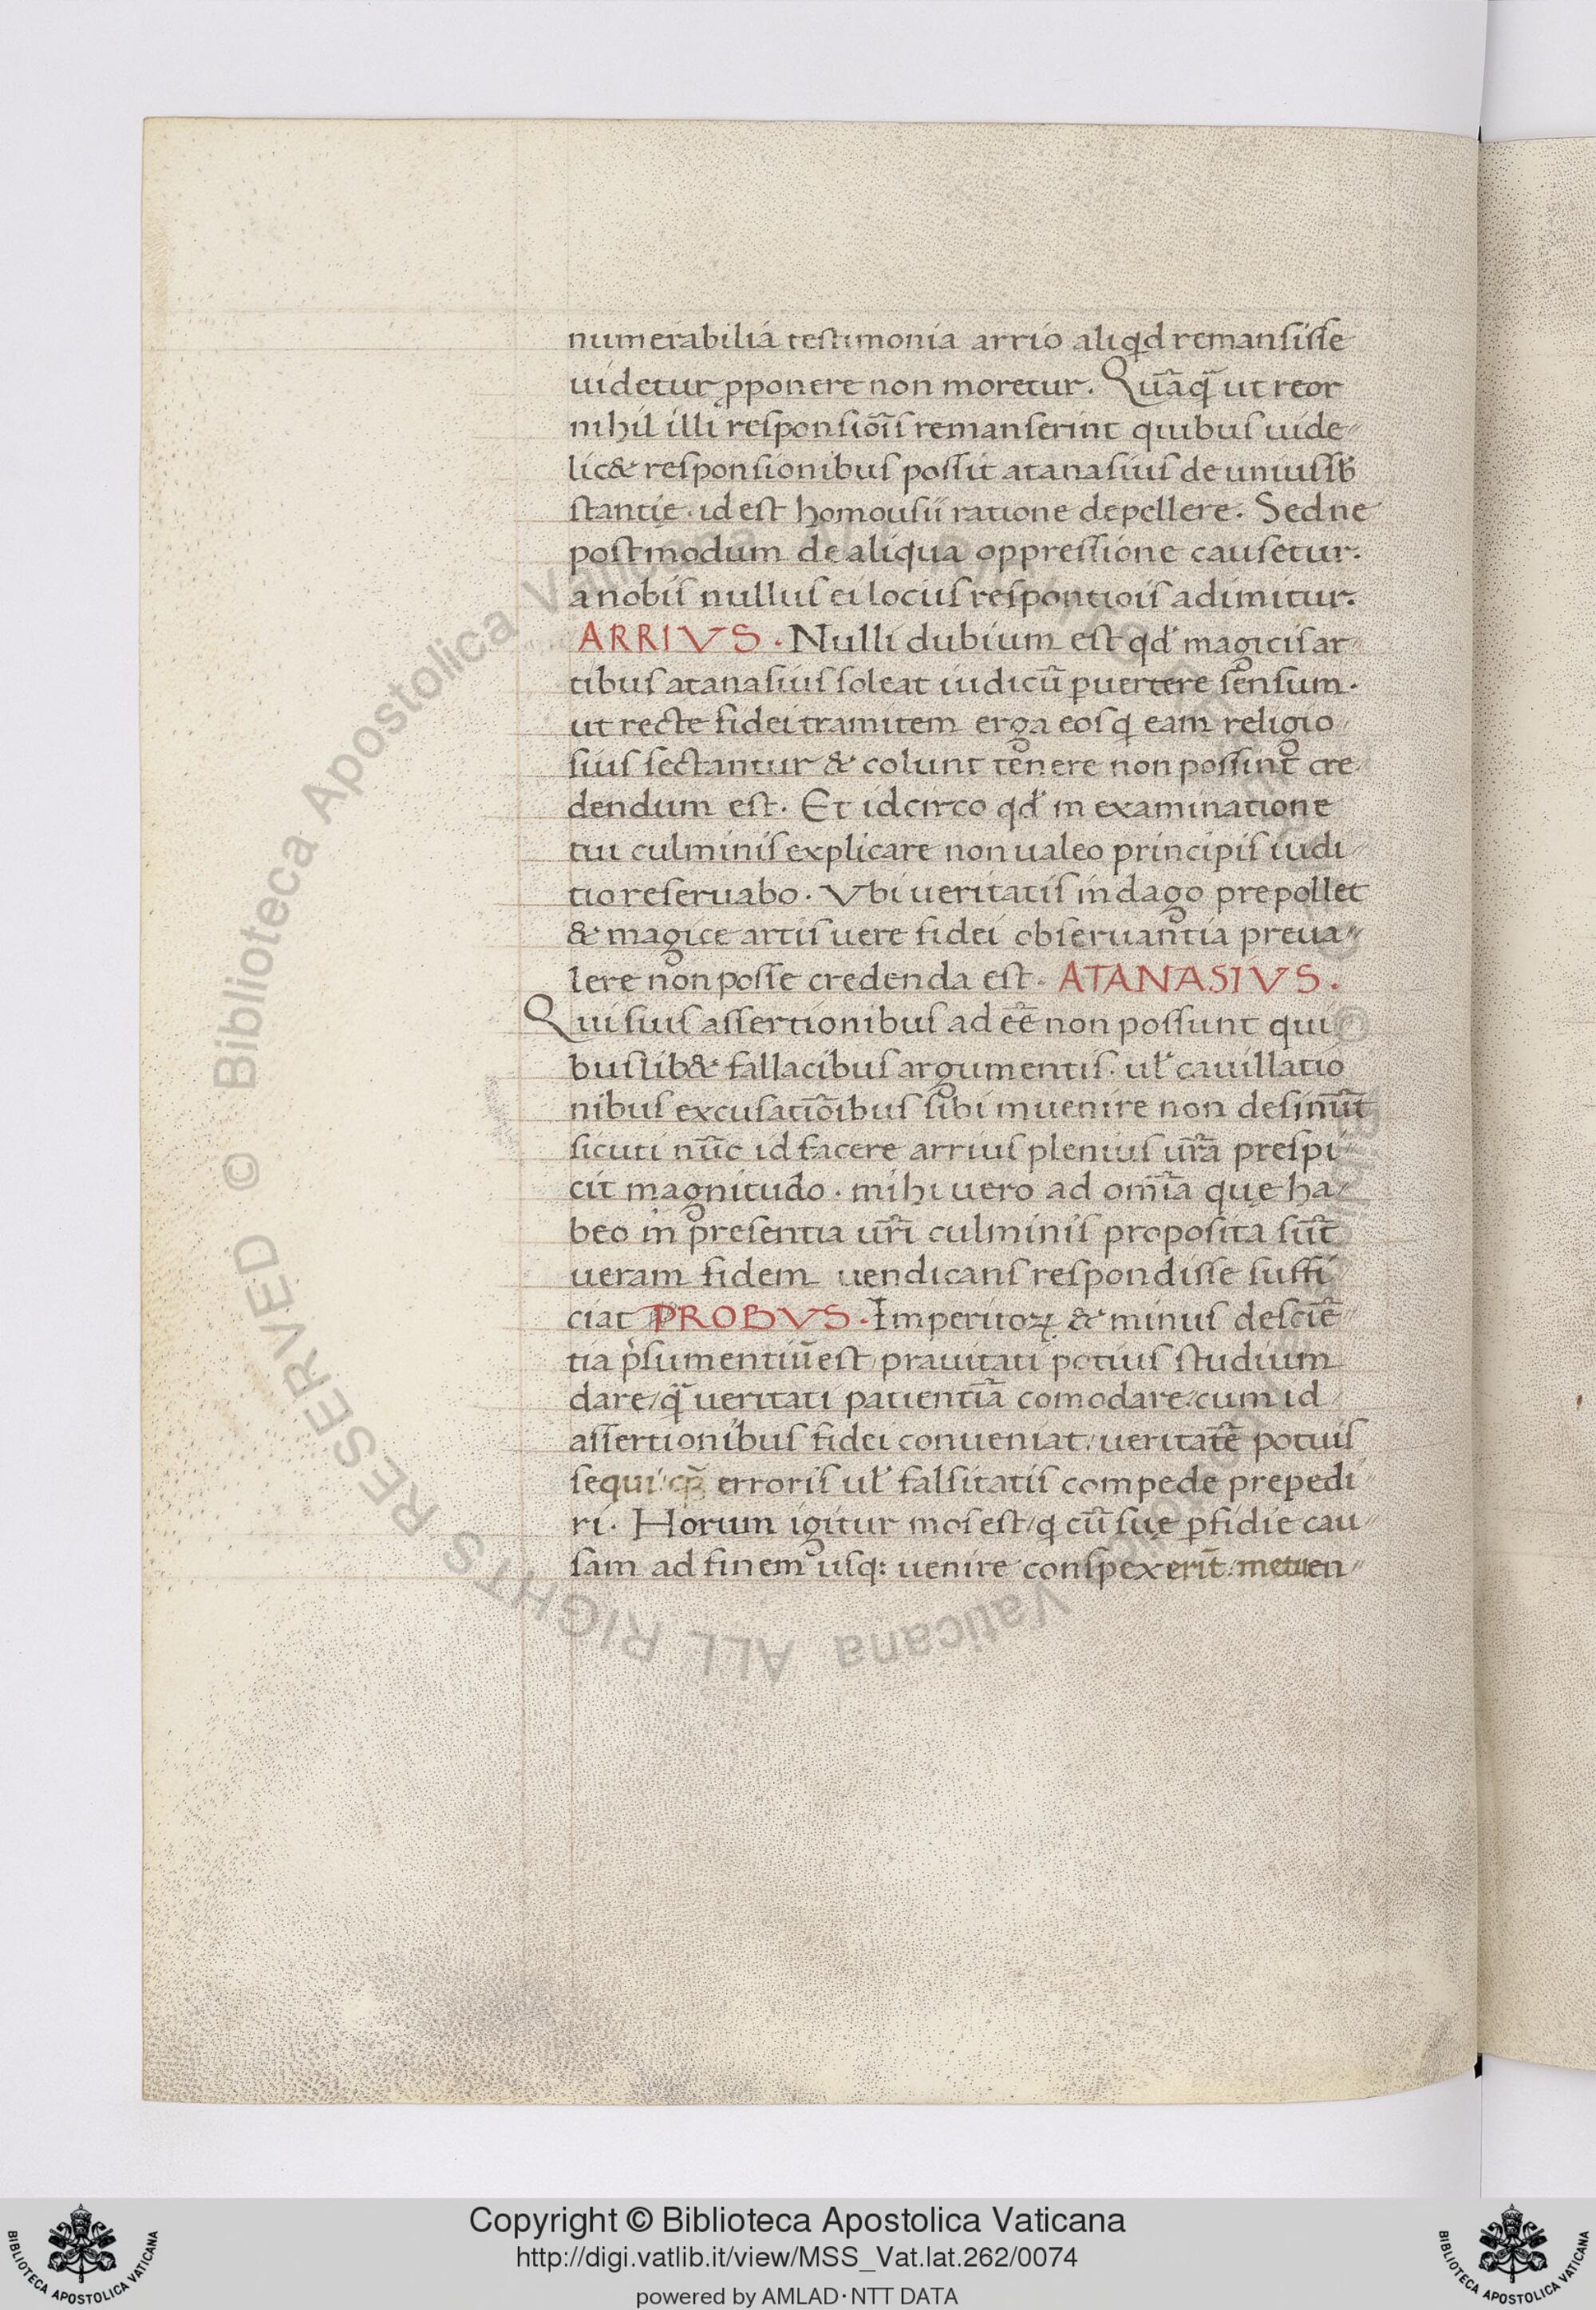 numerabilia testimonia arrio aliqd remansisse
uidetur ꝓponere non moretur. Quāq̄ ut reor
nihil illi responsiōīs remanserint quibus uide〃
lic& responsionibus possit atanasius de unius sb̄
stantię · id est homousii ratione depellere. Sed ne
postmodum de aliqua oppressione causetur.
a nobis nullus ei locus respontiois adimitur.
ARRIVS · Nulli dubium est qd' magicis ar〃
tibus atanasius soleat iudicū ꝑuertere sensum.
ut recte fidei tramitem erga eos q eam religio〃
sius sectantur & colunt tenere non possint cre
dendum est. Et idcirco qd' in examinatione
tui culminis explicare non ualeo principis iudi〃
tio reseruabo. Vbi ueritatis indago prepollet
& magice artis uere fidei obseruantia preua〃
lere non posse credenda est. ATANASIVS.
Qui suis assertionibus ad eē non possunt qui〃
buslib& fallacibus argumentis · ul' cauillatio
nibus excusatiōibus sibi inuenire non desinūt
sicuti nūc id facere arrius plenius ur̄a prespi〃
cit magnitudo · mihi uero ad om̄ia quę ha〃
beo in presentia ur̄i culminis proposita sūt
ueram fidem uendicans respondisse suffi〃
ciat PROBVS · Imperitoꝝ & minus desciē〃
tia p̓sumentiū est prauitati potius studium
dare/ q̄ ueritati patientiā comodare/ cum id〃
assertionibus fidei conueniat: ueritatē potuis
sequi: qꝫ̄ erroris ul' falsitatis compede prepedi〃
ri. Horum igitur mos est/ q cū sue ꝑfidie cau〃
sam ad finem usq: uenire conspexerīt: metuen〃
Copyright © Biblioteca Apostolica Vaticana
http://digi.vatlib.it/view/MSS_Vat.lat.262/0074
powered by AMLAD·NTT DATA
BIBLIOTECA APOSTOLICA VATICANA
BIBLIOTECA APOSTOLICA VATICANA
© Biblioteca Apostolica Vaticana ALL RIGHTS RESERVED © Biblioteca Apostolica Vaticana ALL RIGHTS RESERVED